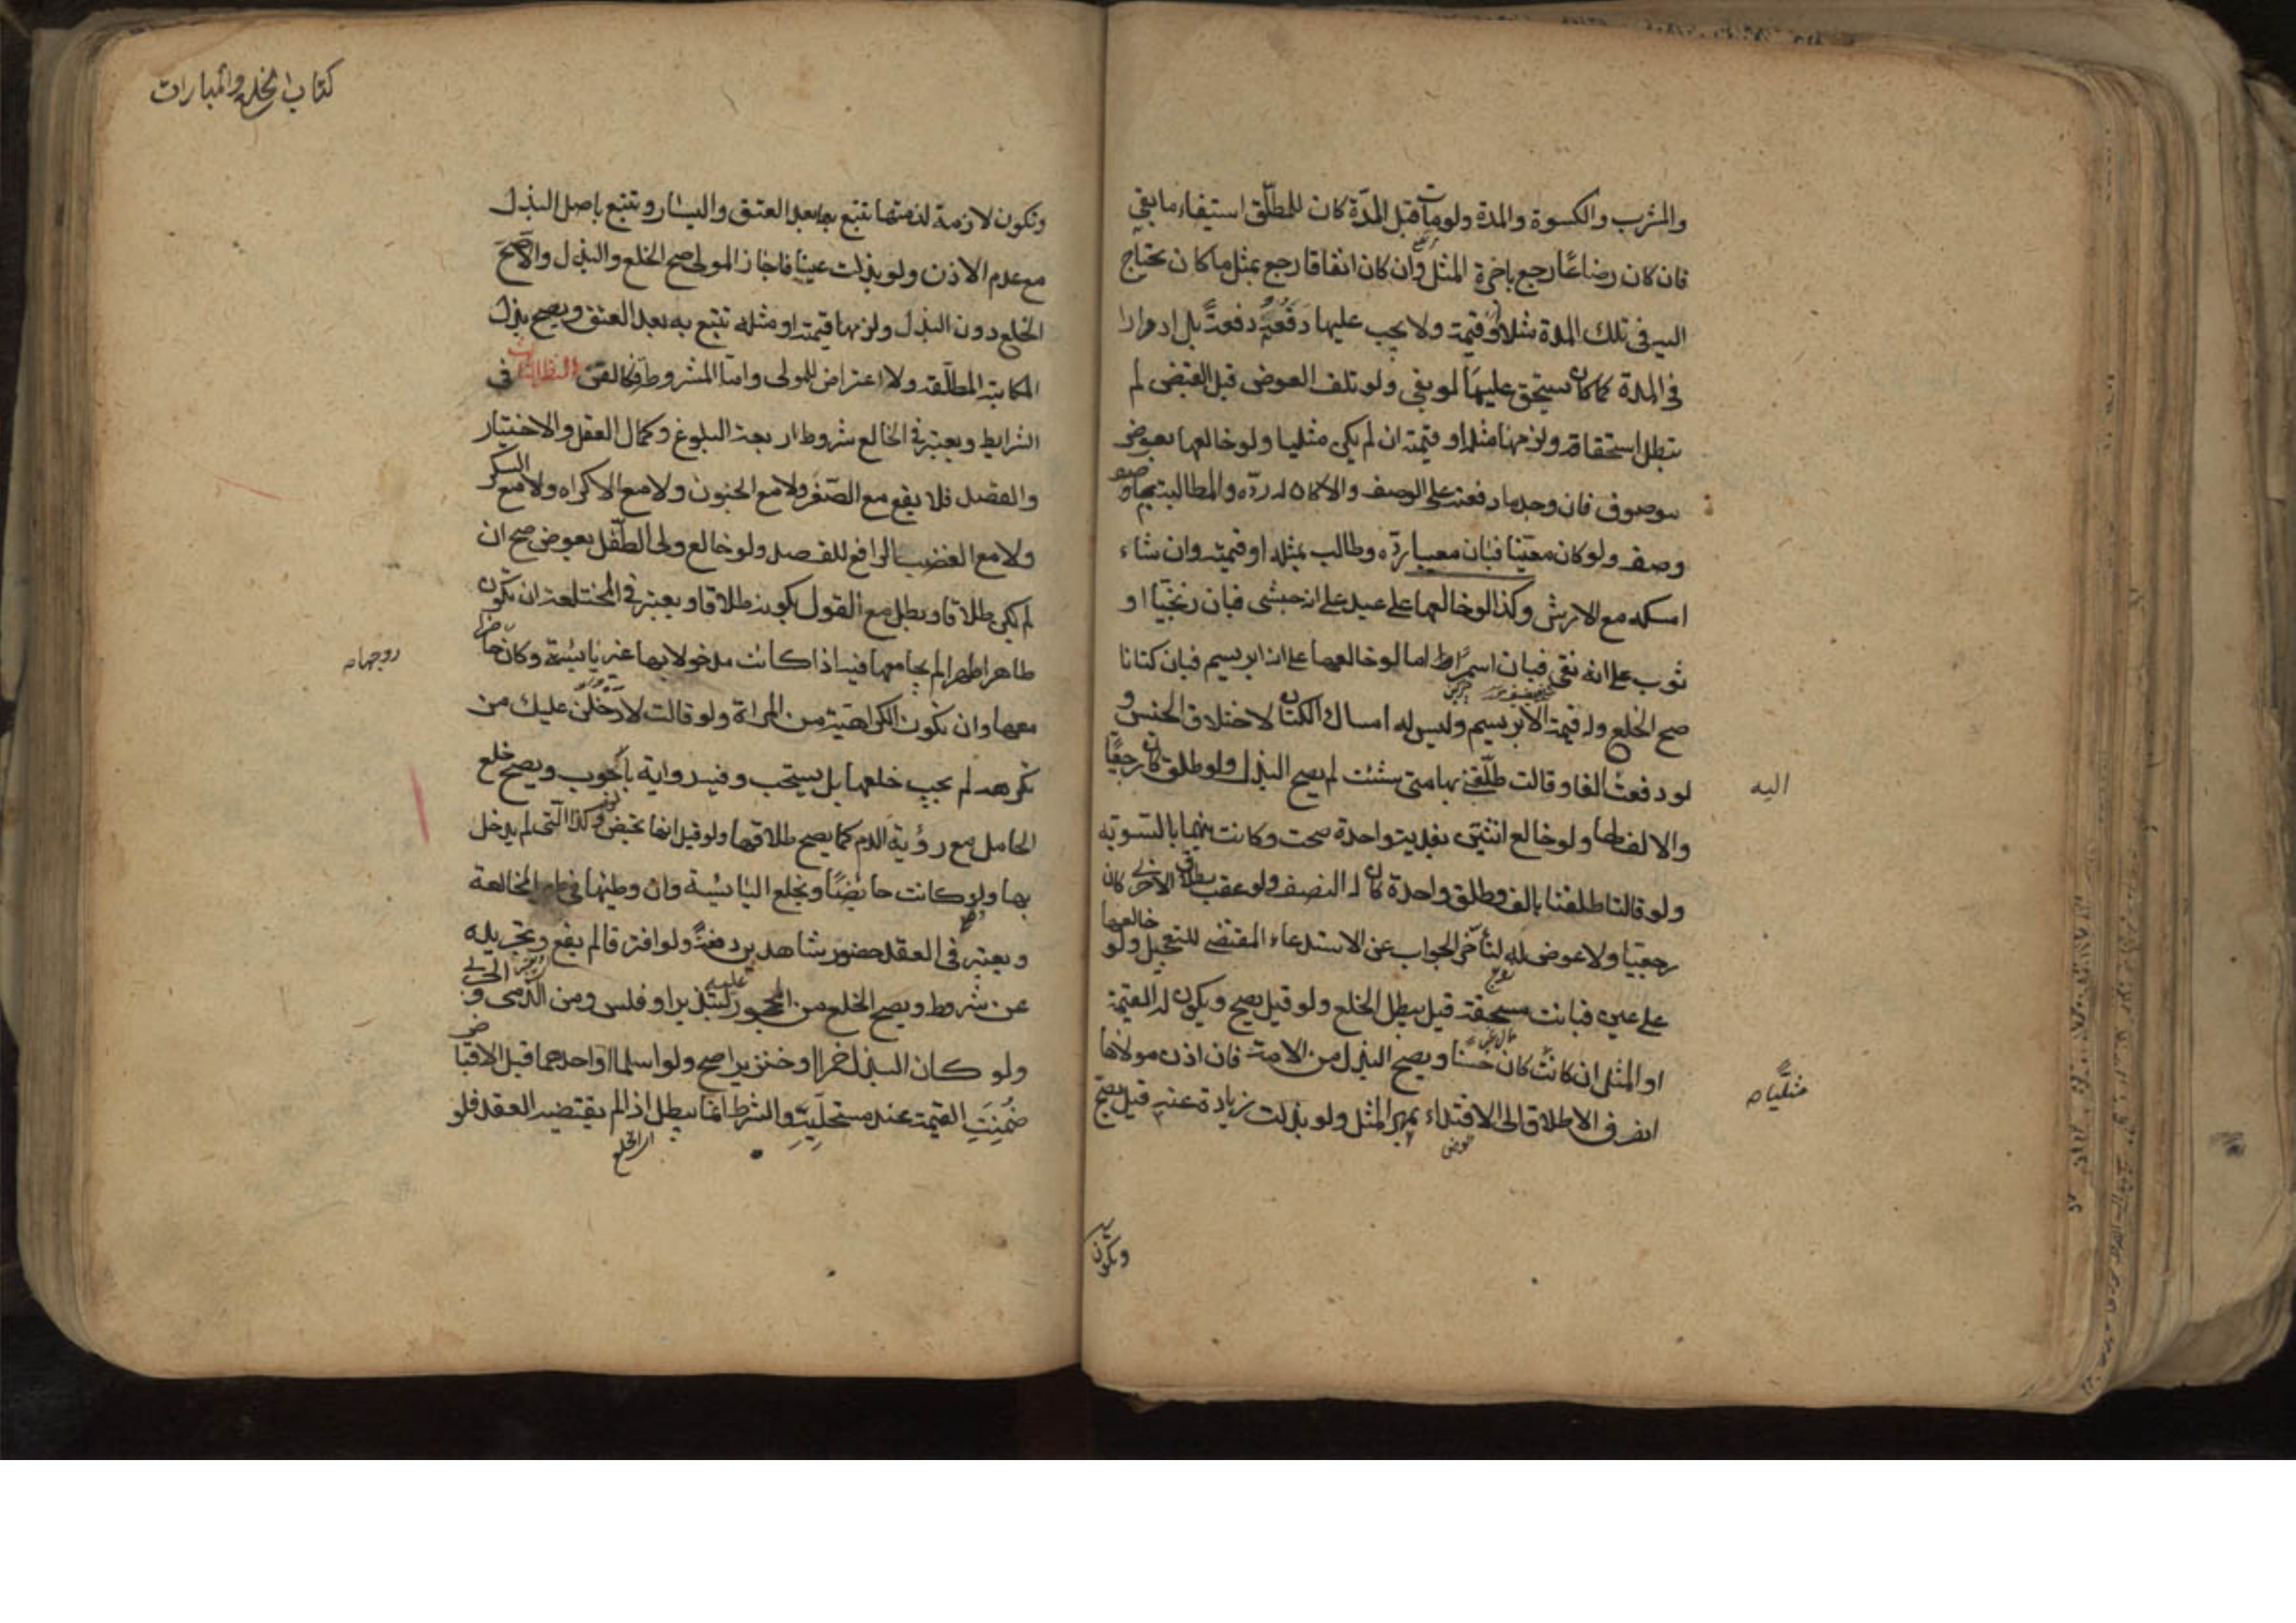 والمشرب والكسوة والمدة ولو مات قبل المدّة كان للمطلّق استيفاء ما بقي
فان كان رضاعًا رجع باجرة المثل وان كان انفاقا رجع بمثل ما كان يحتاج
اليه في تلك المدة مثلا او قيمة ولا يجب عليها دَفْعُهُ دفعةً بل ادرارا
في المدة كما كان يستحق عليها لو بقي ولو تلف العوض قبل القبض لم
يبطل استحقاقه ولزمها مثله او قيمته ان لم يكن مثليا ولو خالعها بعوض
موصوف فان وجد ما دفعته على الوصف والا كان له ردّه والمطالبة بما وصف
وصف ولو كان معيّنا فبان معيبا ردّه وطالب بمثله او قيمته وان شاء
امسكه مع الارش وكذا لو خالعها على عبد على انه حبشي فبان زنجيّا او
ثوب على انه نقي فبان اسمر اما لو خالعها على انه ابريسم فبان كتانا
صح الخلع وله قيمة الابريسم وليس له امساك الكتان لاختلاف الجنس و
لو دفعت الفا وقالت طلّقني بها متى شئت لم يصح البذل ولو طلق كان رجعيًّا
والالف لها ولو خالع اثنتين بفدية واحدة صحت وكانت بينهما بالسوية
ولو قالتا طلقنا بالف فطلق واحدة كان له النصف ولو عقب بطلاق الاخرى كان
رجعيّا ولا عوض له لتأخر الجواب عن الاستدعاء المقتضي للتعجيل ولو خالعها
على عين فبانت مستحقة قيل يبطل الخلع ولو قيل يصح ويكون له القيمة
او المثل ان كانت كان حسنا ويصح البذل من الامة فان اذن مولاها
انصرف الاطلاق الى الافتداء بمهر المثل ولو بذلت زيادة عنه قيل يصح
اليه
مثليا
ويكون
كتاب الخلع والمبارات
وتكون لازمة لذمتها تتبع بها بعد العتق واليسار وتتبع باصل البذل
مع عدم الاذن ولو بذلت عينا فاجاز المولى صح الخلع والبذل والا صح
الخلع دون البذل ولزمها قيمته او مثله تتبع به بعد العتق ويصح بذل
المكاتبة المطلّقة ولا اعتراض للمولى واما المشروطة فكالقن النظر الثالث في
الشرايط ويعتبر في الخالع شروط اربعة البلوغ وكمال العقل والاختيار
والقصد فلا يقع مع الصّغر ولا مع الجنون ولا مع الاكراه ولا مع السكر
ولا مع الغضب الرافع للقصد ولو خالع ولي الطّفل بعوض صح ان
لم يكن طلاقا وبطل مع القول بكونه طلاقا ويعتبر في المختلعة ان تكون
طاهرا طهرا لم يجامعها فيه اذا كانت مدخولا بها غير يائسة وكان حاضرا
معها وان تكون الكراهية من المراة ولو قالت لادخلن عليك من
تكرهه لم يجب خلعها بل يستحب وفيه رواية بالوجوب ويصح خلع
الحامل مع رؤية الدم كما يصح طلاقها ولو قيل انها تحيض وكذا التي لم يدخل
بها ولو كانت حائضًا وتخلع اليائسة وان وطئها في طهر المخالعة
ويعتبر في العقد حضور شاهدين دفعةً ولو افترقا لم يقع وتجريده
عن شروط ويصح الخلع من المحجور عليه لتبذير او فلس ومن الذمي والحربي
ولو كان البذل خمرا او خنزيرا صح ولو اسلما او احدهما قبل الاقباض
ضُمِنَتِ القيمة عند مستحلّيه والشرط انما يبطل اذا لم يقتضيه العقد فلو
زوجها
اي الخلع